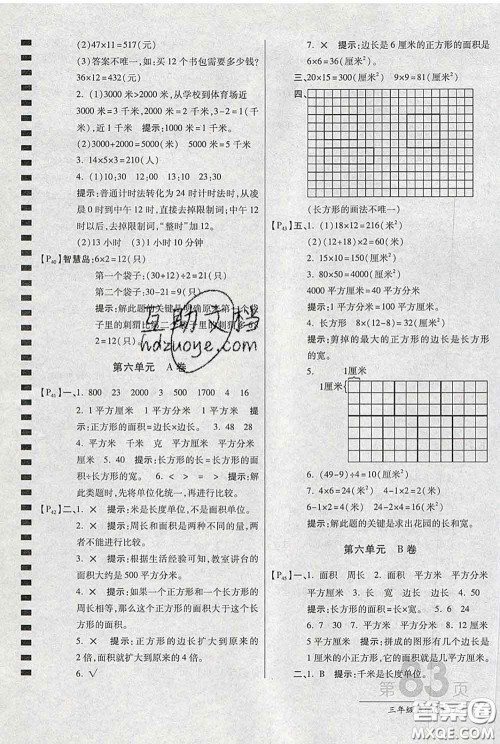 (2)47×11=517(元)
(3)答案不唯一,如:买 12 个书包需要多少钱?
36×12=432(元)
2. (1)3000 米>2000 米,从学校到体育场近
3000 米=3 千米,2000 米=2 千米,3-2=1(千
米),近 1 千米 提示:1000 米=1 千米。
(2)3000+2000=5000(米) 5000 米=5 千米
3. 14×5×3=210(人)
4. (1)10;30 22 (2)17;00 15;30
提示:普通计时法转化为 24 时计时法,从凌
晨 0 时到中午 12 时,直接去掉限制词;中午
12 时以后,去掉限制词,“整时”加 12。
5. (2)13 小时 (3)1 小时 10 分钟
[P40]智慧岛:6×2=12(只)
第一个袋子:(30+12)÷2=21(只)
第二个袋子:30-21=9(只)
提示:解此题的关键是明确原来第一个袋
子里的刺猬比第二个袋子里的刺猬多 6×
2=12(只)。
第六单元 A 卷
[P41]一、1. 800 23 2000 3 500 1700 4 16
2. 1 平方厘米 1 平方分米 1 平方米 提
示:正方形的面积=边长×边长。 3. 48 28
4. 平方厘米 千米 克 平方米 平方分米
平方米 5. 40 提示:长方形的长=长方形
的面积÷长方形的宽。 6. < > = < 提示:解
此类题时,先将单位化统一,再进行比较。
[P42]二、1. × 提示:米是长度单位,不是面积单位。
2. × 提示:周长和面积是两种不同的量,
不能进行比较。
3. × 提示:根据生活经验可知,教室讲台的
面积大约是 500 平方分米。
4. × 提示:如果一个正方形和一个长方形的
周长相等,那么这个正方形的面积大于长方形
的面积。
5. × 提示:正方形的边长扩大到原来的
2 倍,面积扩大到原来的 4 倍。
6. √
7. × 提示:边长是 6 厘米的正方形的面积是
6×6=36(平方厘米)。
三、20×15=300(厘米²) 9×9=81(厘米²)
四、
(长方形的画法不唯一)
[P43]五、1. (1)18×12=216(米²)
(2)(12+18)×2=60(米)
2. 15×10=150(厘米²)
3. 80×50=4000(厘米²)
4000 平方厘米=40 平方分米
4. 长方形 8×(12-8)=32(厘米²)
提示:剪掉的最大的正方形的边长是长方形
的宽。
5. 1厘米
1厘米
6. (49-9)÷4=10(厘米²)
7. 4×6=24(米²) 4-1×2=2(米)
6-1×2=4(米) 4×2=8(米²)
提示:解此题的关键是求出花园的长和宽。
第六单元 B 卷
一、1. 面积 周长 2. 面积 平方米 平方分米
平方厘米 3. 平方厘米 平方米 平方分米
4. 长 宽 边长 边长 5. 6 24
6. 12 平方厘米 提示:拼成的图形有几个
小正方形,它的面积就是几平方厘米。
二、1. B 提示:千米是长度单位。
第83页
三年级
互助文档
hdzuoye.com
答案圈
MXQE.COM